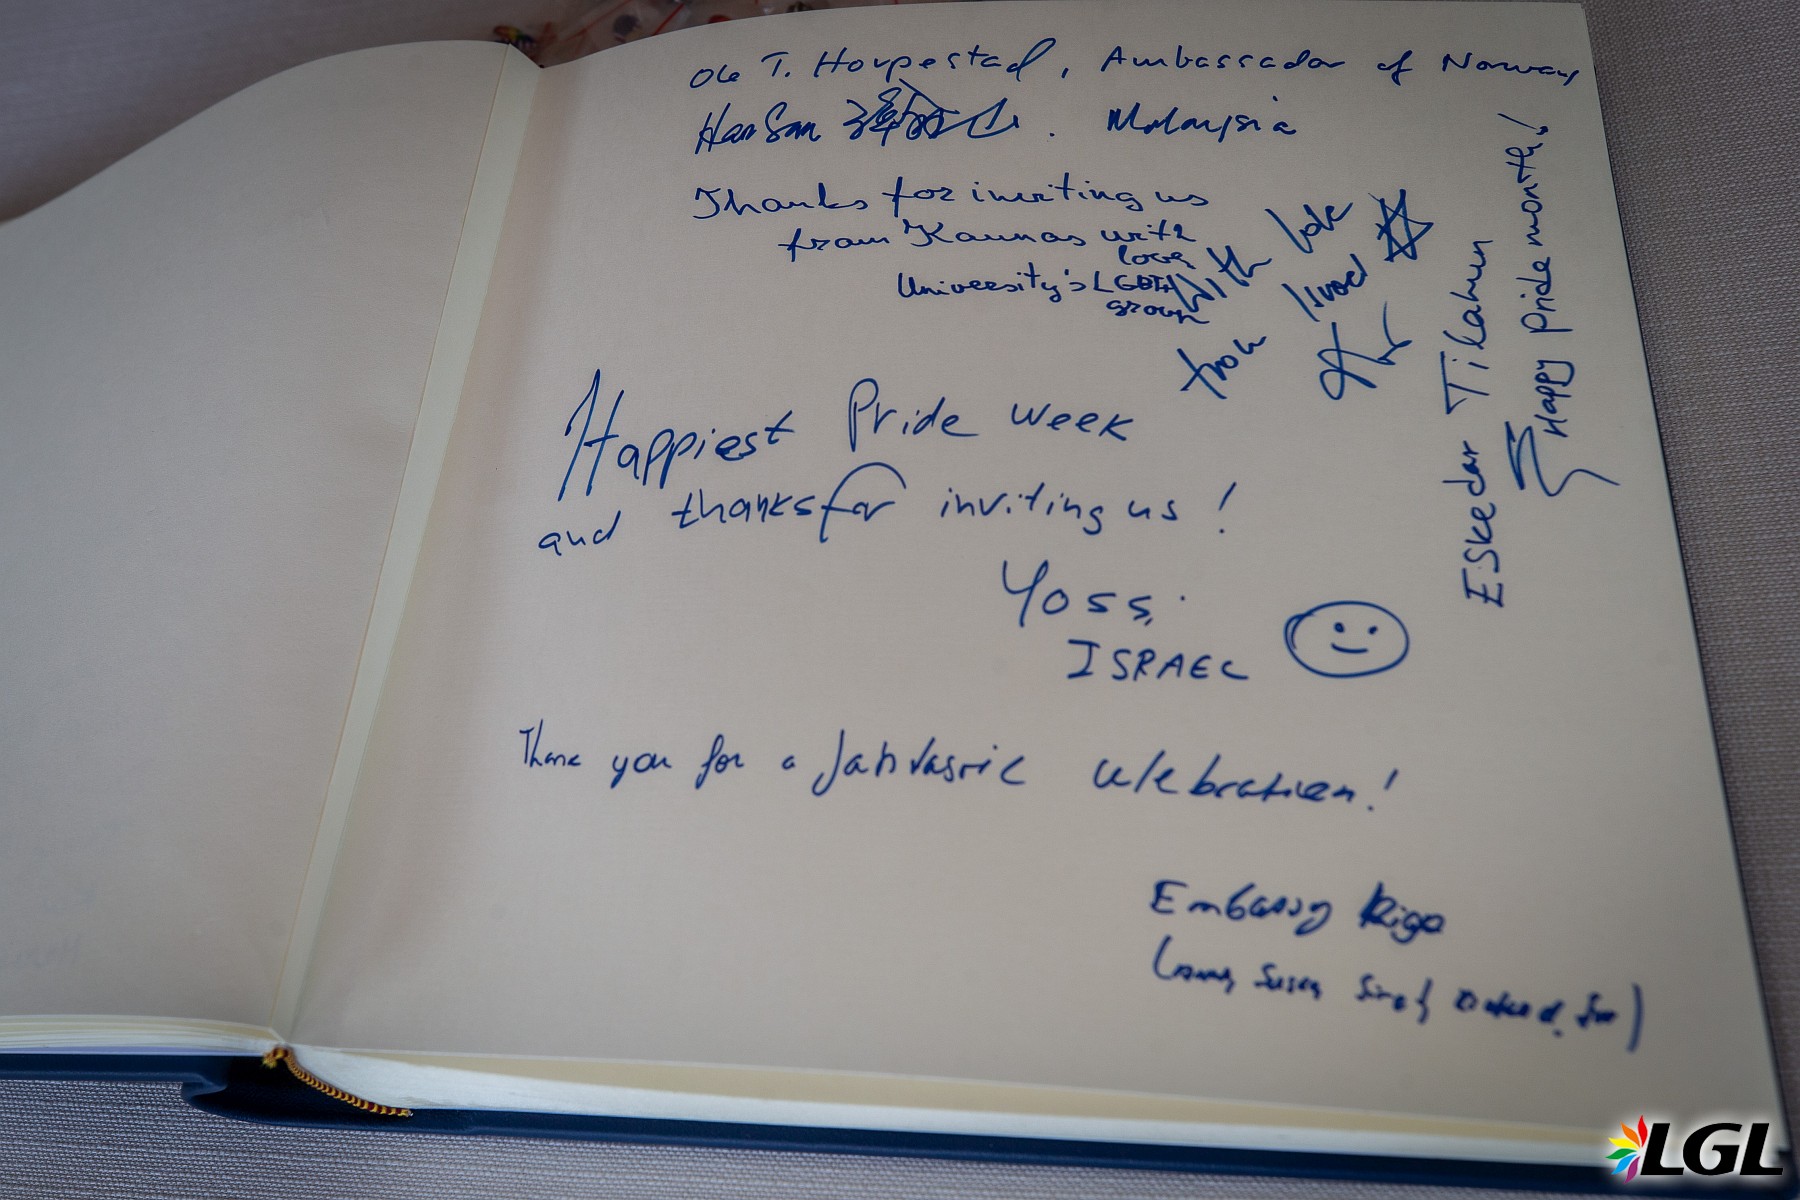 Ole T. Horpestad, Ambassador of Norway
HanSan . Malaysia
Thanks for inviting us
from Kaunas with
love
University's LGBT+
group
With love
from
Eskedar Tilahun
Happy Pride month!
Happiest Pride week
and thanks for inviting us!
Yossi
ISRAEL
Thank you for a fantastic celebration!
Embassy Riga
LGL